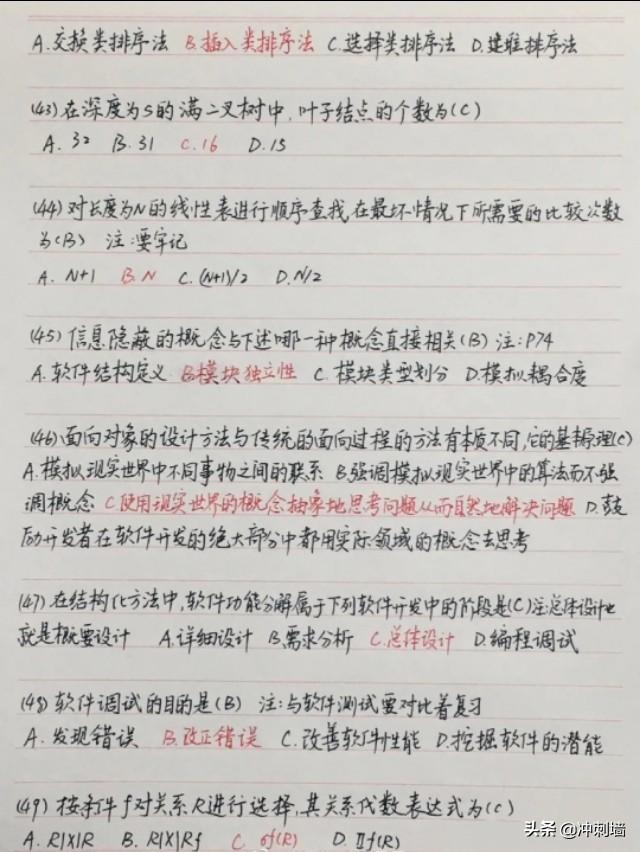 A.交换类排序法 B.插入类排序法 C.选择类排序法 D.建堆排序法
(43)在深度为5的满二叉树中,叶子结点的个数为(C)
A.32 B.31 C.16 D.15
(44)对长度为N的线性表进行顺序查找,在最坏情况下所需要的比较次数
为(B) 注:要牢记
A.N+1 B.N C.(N+1)/2 D.N/2
(45)信息隐蔽的概念与下述哪一种概念直接相关(B) 注:P74
A.软件结构定义 B.模块独立性 C.模块类型划分 D.模拟耦合度
(46)面向对象的设计方法与传统的面向过程的方法有本质不同,它的基本原理(C)
A.模拟现实世界中不同事物之间的联系 B.强调模拟现实世界中的算法而不强
调概念 C.使用现实世界的概念抽象地思考问题从而自然地解决问题 D.鼓
励开发者在软件开发的绝大部分中都用实际领域的概念去思考
(47)在结构化方法中,软件功能分解属于下列软件开发中的阶段是(C)注:总体设计也
就是概要设计 A.详细设计 B.需求分析 C.总体设计 D.编程调试
(48)软件调试的目的是(B) 注:与软件测试要对比着复习
A.发现错误 B.改正错误 C.改善软件性能 D.挖掘软件的潜能
(49)按条件f对关系R进行选择,其关系代数表达式为(C)
A.R|X|R B.R|X|Rf C.σf(R) D.Πf(R)
头条@冲刺墙